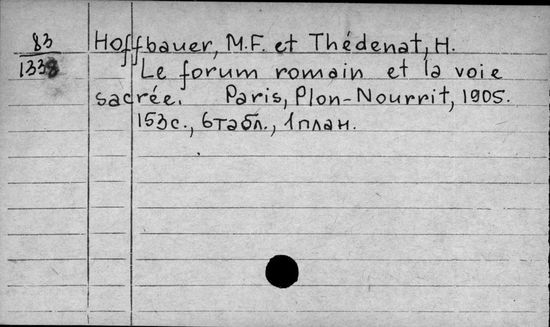 83
1338
Hoffbauer, M.F. et Thédenat, H.
Le forum romain et la voie
sacrée. Paris, Plon-Nourrit, 1905.
153с., 6табл., 1план.